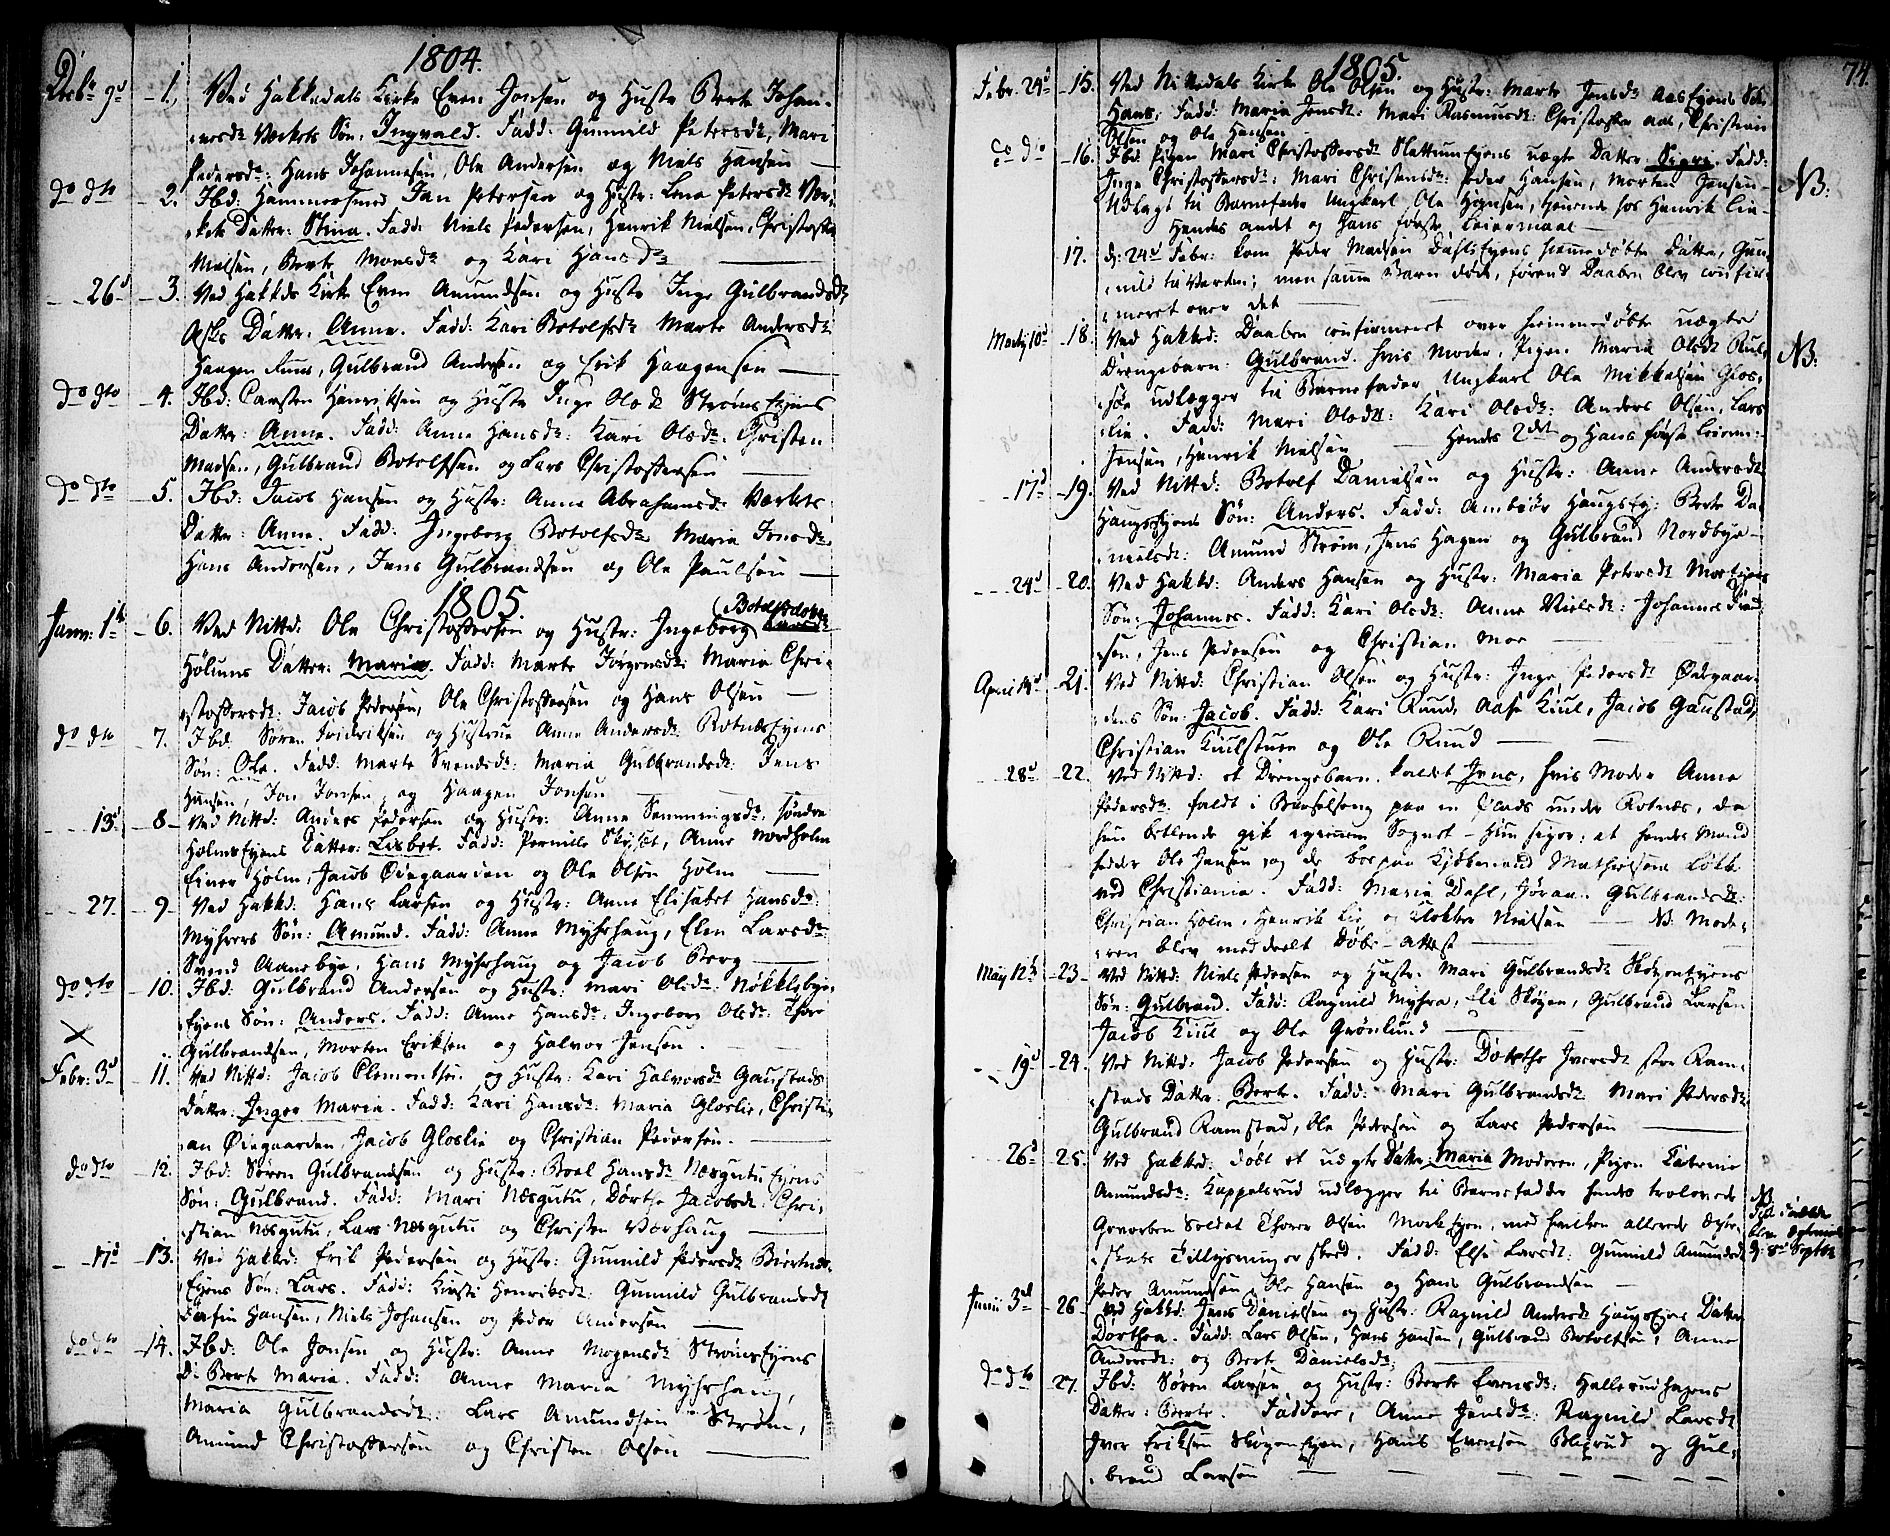 1804.
Dcbr 9d 1, Ved Hakkedals Kirke Even Jonsen og Hustr Berte Johan-
nesdr Værkets Søn, Ingvald. Fadd: Gunnild Petersdr, Mari
Pedersdr: Hans Johannesen, Ole Andersen og Niels Hansen —
do dto 2. Ibd: Hammersmed Jan Petersen og Hustr: Lena Petersdr Vær-
kets Datter: Stina. Fadd: Niels Pedersen, Henrik Nielsen, Christoffer
Nielsen, Berte Monsdr og Kari Hansdr —
26d 3. Ved Hakkds Kirke Even Amundsen og Hustr Inge Gulbrandsdr
Asks Datter. Anne. Fadd: Kari Botolfsdr Marte Andersdr
Haagen Ruus, Gulbrand Andersen og Erik Haagensen —
do dto 4. Ibd: Carsten Henriksen og Hustr Inge Olsdr Strøms Ejens
Datter: Anne. Fadd: Anne Hansdr: Kari Olsdr. Christen
Madsen, Gulbrand Botolfsen og Lars Christoffersen —
do dto 5. Ibd: Jacob Hansen og Hustr: Anne Abrahamsdr Værkets
Datter: Anne. Fadd: Ingeborg Botolfsdr Maria Jensdr
Hans Andersen, Jens Gulbrandsen og Ole Paulsen —
1805.
Janv: 1te 6. Ved Nittd: Ole Christoffersen og Hustr: Ingeborg (Botolfsdotter
Holums Datter: Maria. Fadd: Marte Jørgensdr: Maria Chri-
stoffersdr: Jacob Pedersen, Ole Christoffersen og Hans Olsen —
do dto 7. Ibd Søren Fridriksen og Hustrue Anne Andersdr Rotnæs Ejens
Søn: Ole. Fadd: Marte Svendsdr: Maria Gulbrandsdr: Jens
Hansen, Jon Jonsen og Haagen Jonsen —
13d 8 Ved Nittd: Anders Pedersen og Hustr: Anne Semmingsdr, søndre
Holms Ejens Datter: Lisbet. Fadd: Pernille Skyset, Anne Nordholm
Einer Holm, Jacob Ødegaarden og Ole Olsen Holm —
27. 9 Ved Hakkd: Hans Larsen og Hustr: Anne Elisabet Hansdr:
Myhrers Søn: Amund. Fadd: Anne Myhrhaug, Elen Larsdr
Svend Aanebye, Hans Myhrhaug og Jacob Berg —
do dto 10. Ibd: Gulbrand Andersen og Hustr: Mari Olsdr: Nøkklebye-
Ejens Søn: Anders. Fadd: Anne Hansdr: Ingeborg Olsdr: Thore
Gulbrandsen, Morten Eriksen og Halvor Jensen.
Febr: 3d 11. Ved Nittd: Jacob Clementsen og Hustr: Kari Halvorsdr Gaustads
Datter: Inger Maria. Fadd: Kari Hansdr: Maria Gloslie, Christi-
an Øiegaarden, Jacob Gloslie og Christian Pedersen. —
do dto 12. Ibd: Søren Gulbrandsen og Hustr: Boel Hansdr Næsgutu Ejens
Søn: Gulbrand. Fadd: Mari Næsgutu, Dorthe Jacobsdr: Chri-
stian Næsgutu, Lars Næsgutu og Christen Varhaug —
17d 13. Ved Hakkd: Erik Pedersen og Hustr: Gunnild Pedersdr Biertnæs-
Ejens Søn: Lars. Fadd: Kirsti Henriksdr: Gunnild Gulbrandsdr
Torfin Hansen, Niels Johansen og Peder Andersen —
do dto 14. Ibd: Ole Jonsen og Hustr: Anne Mogensdr Strøms Ejens
D: Berte Maria. Fadd: Anne Maria Myhrhaug,
Maria Gulbrandsdr: Lars Amundsen Strøm,
Amund Christoffersen og Christen Olsen —
1805.
74.
Febr. 24d 15. Ved Nittedals Kirke Ole Olsen og Hustr: Marte Jensdr Aas Ejens Søn
Hans. Fadd: Maria Jensdr: Mari Rasmusdr: Christoffer Aas, Christian
Olsen og Ole Hansen
do 16. Ibd: Pigen Mari Christoffersdr Slattum Ejens uægte Datter Sigri. Fadd:
Inge Christoffersdr: Mari Christensdr: Peder Hansen, Morten Jensen —
Udlagt til Barnefader Ungkarl Ole Hansen, tienende hos Henrik Lie —
Hendes andet og Hans første Leiermaal —
NB:
17. d: 24d Febr: kom Peder Madsen Dahls Ejens hiemmedøbte Datter, Gun-
nild til Verden; men samme Barn døde, førend Daaben blev confir-
meret over det —
Martij 10d 18. Ved Hakkd: Daaben confirmeret over hiemmedøbte uægte
Drengebarn: Gulbrand. hvis Moder, Pigen Maria Olsdr Rul-
søe udlægger til Barnefader Ungkarl Ole Mikkelsen Glos-
lie. Fadd: Mari Olsdr: Kari Olsdr: Anders Olsen, Lars
Jensen, Henrik Nielsen — Hendes 2det og Hans første Leierm:
NB:
17d 19. Ved Nittd: Botolf Danielsen og Hustr: Anne Andersdr
Haugs Ejens Søn: Anders. Fadd: Ambiør Haugs Ej: Berte Da-
nielsdr: Amund Strøm, Jens Hagen og Gulbrand Nordbye —
24d 20. Ved Hakkd: Anders Hansen og Hustr: Maria Petersdr Moe Ejens
Søn: Johannes. Fadd: Kari Olsdr: Anne Nielsdr: Johannes
sen, Jens Pedersen og Christian Moe
April 21. Ved Nittd: Christian Olsen og Hustr: Inge Pedersdr Ødegaar-
dens Søn: Jacob. Fadd: Kari Ruud, Aase Kiul, Jacob Gaustad,
Christian Kiulstuen og Ole Ruud —
28d 22. Ved Nittd: et Drengebarn kaldet Jens, hvis Moder Anne
Pedersdr faldt i Barselseng paa en Plads under Rotnæs, da
hun betlende gik igiennem Sognet — Hun siger: at hendes Mand
heder Ole Jensen og de boe paa Kjøbmand Mathiesens Løkke
ved Christiania. Fadd: Maria Dahl, Jøran Gulbrandsdr:
Christian Holm, Henrik Lie og Klokker Nielsen — NB: Mode-
ren blev meddeelt Døbe-Attest —
May 12te 23 Ved Nittd: Niels Pedersen og Hustr: Mari Gulbrandsdr Skøyen Ejens
Søn: Gulbrand. Fadd: Ragnild Myhra, Eli Skøyen, Gulbrand Larsen
Jacob Kiul og Ole Grønlund —
19d 24. Ved Nittd: Jacob Pedersen og Hustr: Dorthe Iversdr store Ram-
stads Datter. Berte. Fadd: Mari Gulbrandsdr Mari Pedersdr
Gulbrand Ramstad, Ole Pedersen og Lars Pedersen —
26d 25. Ved Hakkd: døbt et uægte Datter: Maria Moderen, Pigen Catrine
Amundsdr: Kappelsrud udlægger til Barnefader hendes trolovede
Gevorben Soldat Thorer Olsen Moe Ejen, med hvilken allerede ægte-
skabs Tillysning er skeed. Fadd: Else Larsdr: Gunnild Amundsdr
Peder Amundsen, Ole Hansen og Hans Gulbrandsen —
NB
d: 8de Septbr
Junii 3d 26 Ved Hakkd: Jens Danielsen og Hustr: Ragnild Andersdr Haugs Ejens Datter
Dorthea. Fadd: Lars Olsen, Hans Hansen, Gulbrand Botolfsen, Anne
Andersdr: og Berte Danielsdr:
do dto 27. Ibd: Søren Larsen og Hustr: Berte Evensdr: Hallerudhagens
Datter: Berte. Faddere, Anne Jensdr: Ragnild Larsdr
Iver Eriksen Skøyen Ejen, Hans Evensen Blegrud og Gul-
brand Larsen —